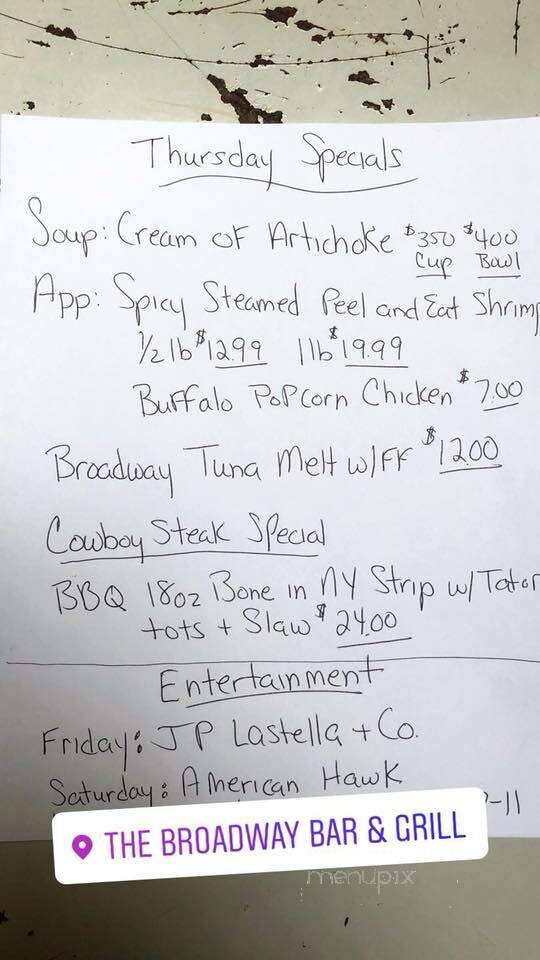 Thursday Specials
Soup: Cream of Artichoke $350 $400
Cup Bowl
App: Spicy Steamed Peel and Eat Shrimp
1/2 lb $12.99 1 lb $19.99
Buffalo Popcorn Chicken $7.00
Broadway Tuna Melt w/FF $12.00
Cowboy Steak Special
BBQ 18oz Bone in NY Strip w/ Tator
tots + Slaw $24.00
Entertainment
Friday: JP Lastella + Co.
Saturday: American Hawk
-11
THE BROADWAY BAR & GRILL
menupix